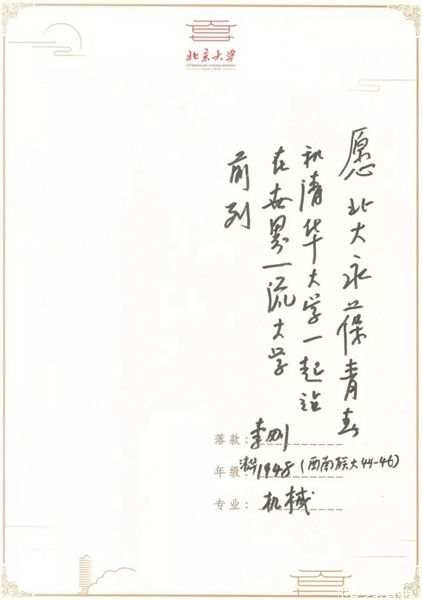 北京大学
愿北大永葆青春
和清华大学一起站
在世界一流大学
前列
落款：李刚
年级：清华1948（西南联大44-46）
专业：机械